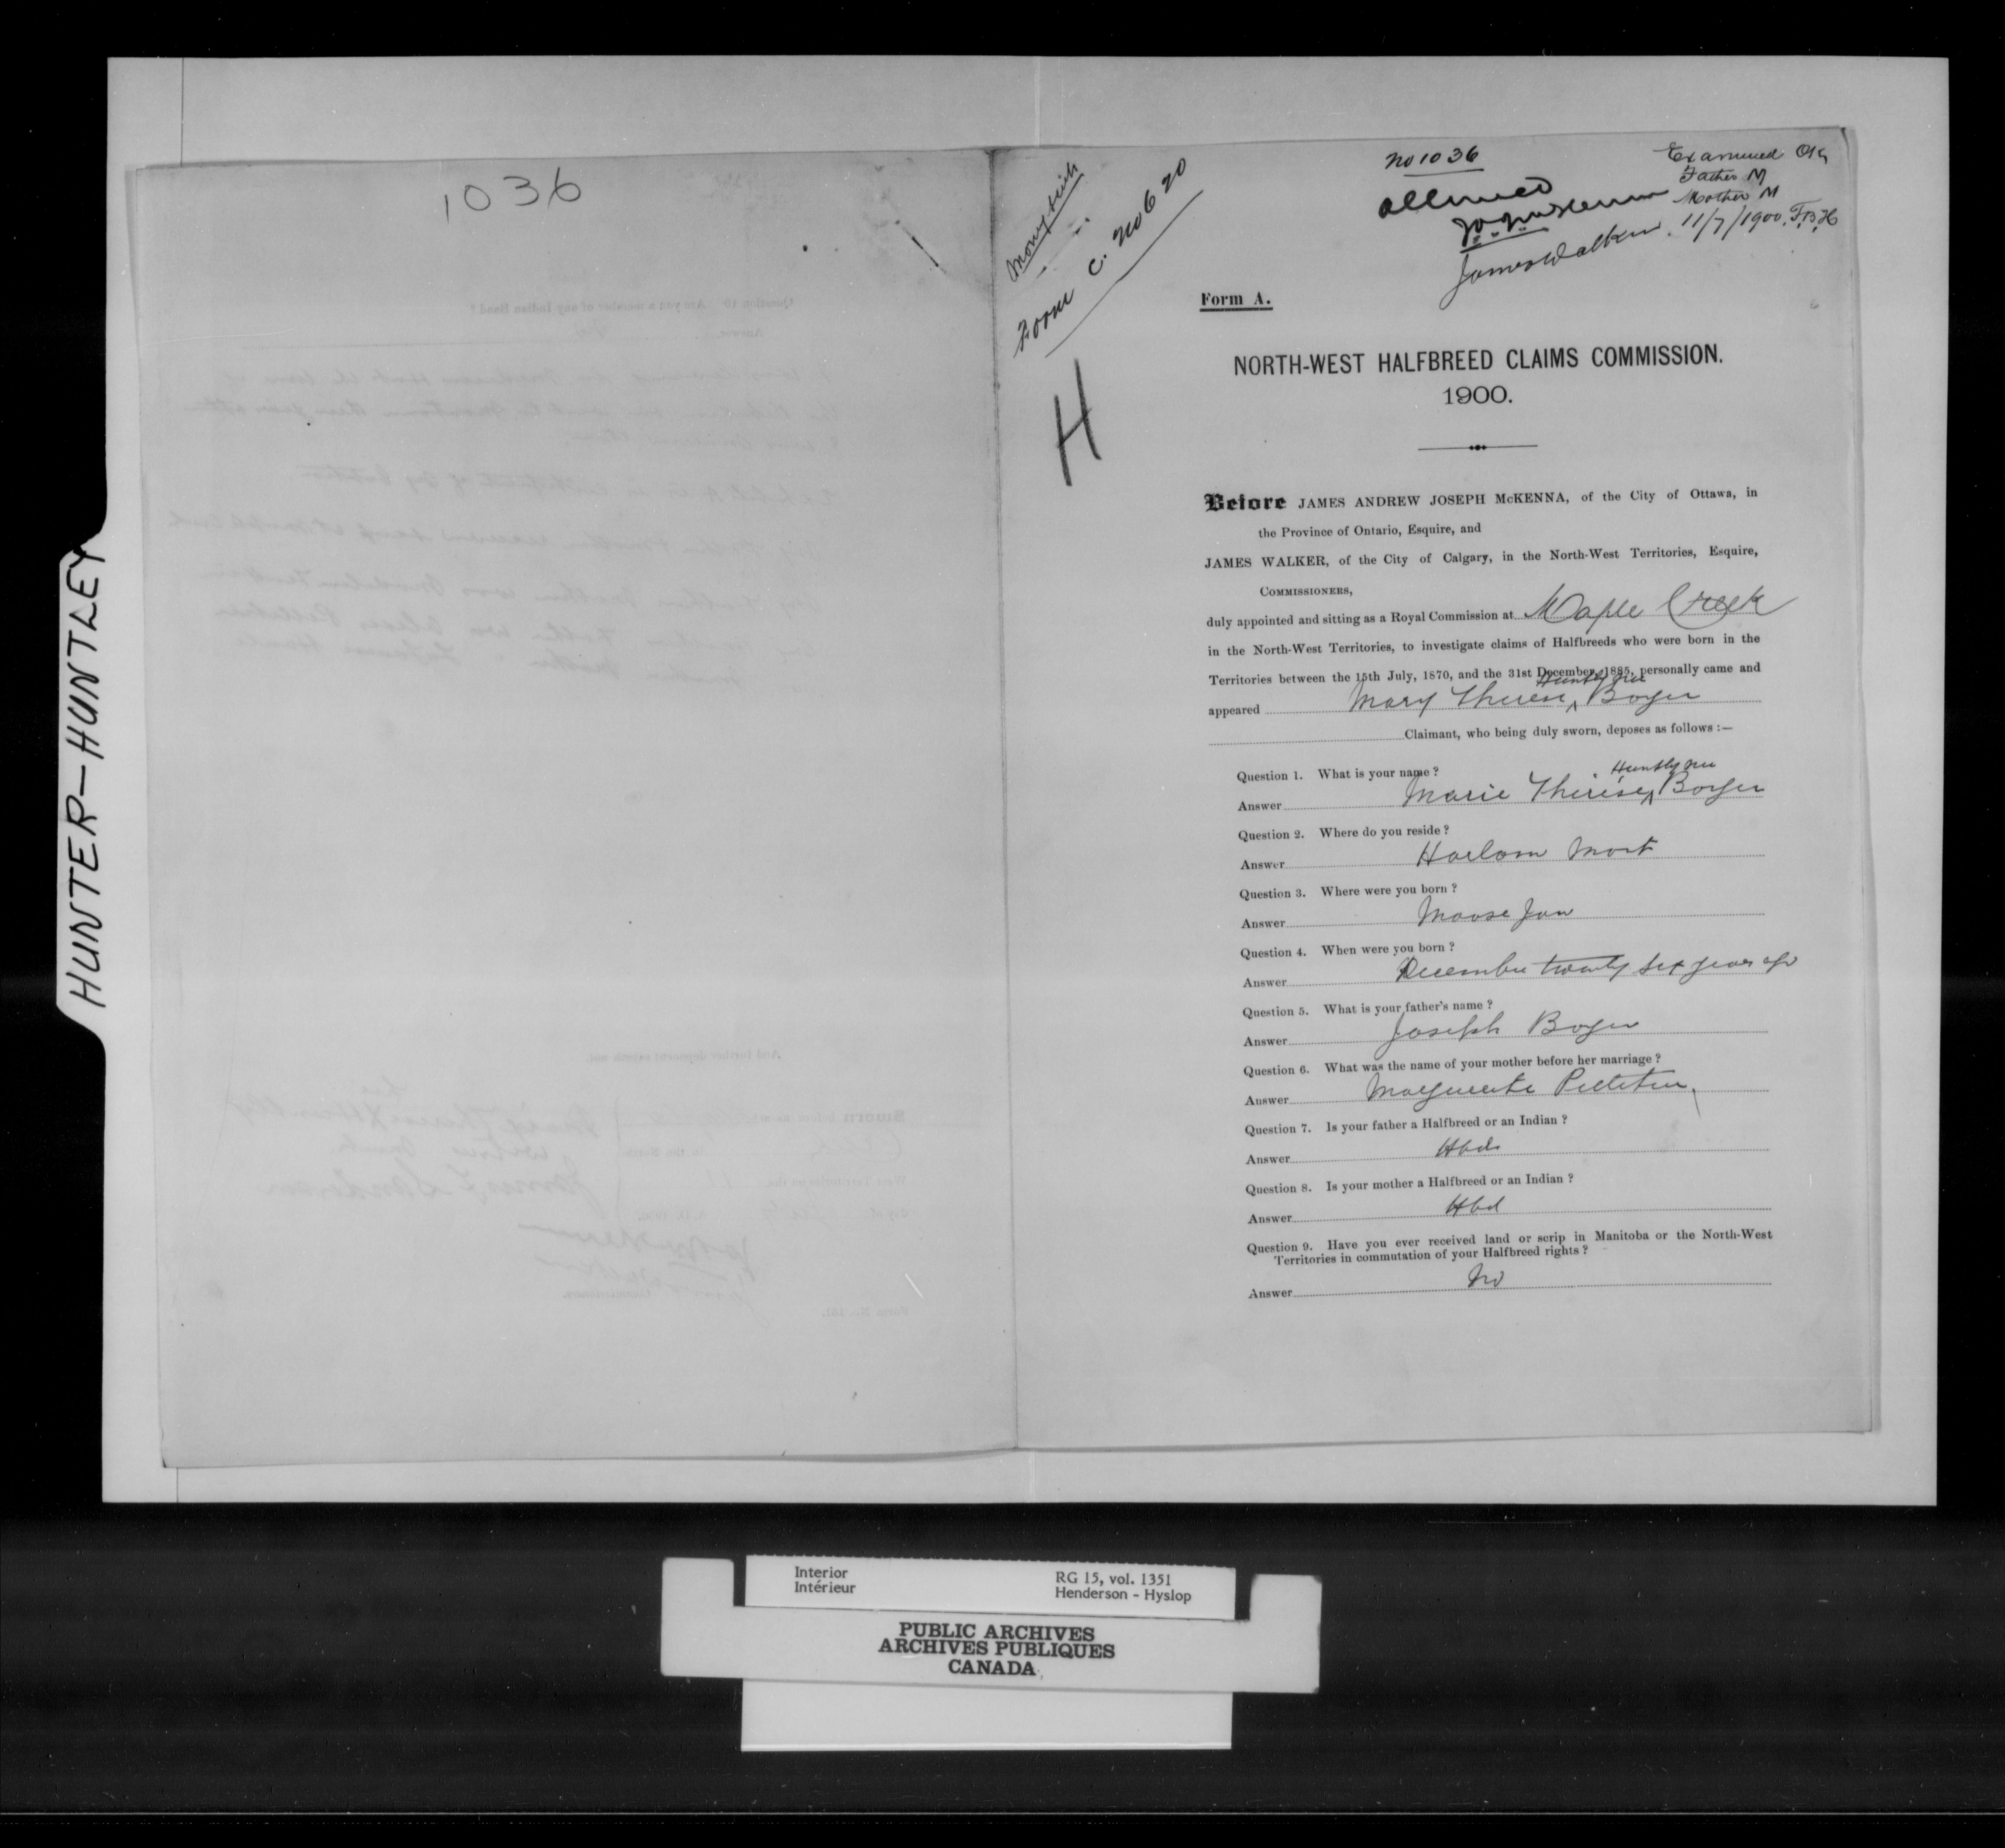 HUNTER-HUNTLEY
1036
Money scrip
Form C. No 620
H
No 1036
Allowed
J.A.J. McKenna
James Walker
Examined OK
Father M
Mother M
11/7/1900. F.B.H
Form A.
NORTH-WEST HALFBREED CLAIMS COMMISSION.
1900.
Before JAMES ANDREW JOSEPH McKENNA, of the City of Ottawa, in
the Province of Ontario, Esquire, and
JAMES WALKER, of the City of Calgary, in the North-West Territories, Esquire,
COMMISSIONERS,
duly appointed and sitting as a Royal Commission at Maple Creek
in the North-West Territories, to investigate claims of Halfbreeds who were born in the
Territories between the 15th July, 1870, and the 31st December, 1885, personally came and
appeared Mary Therese Huntly nee Boyer
Claimant, who being duly sworn, deposes as follows :—
Question 1. What is your name ?
Answer Marie Therese Huntly nee Boyer
Question 2. Where do you reside ?
Answer Harlam Mont
Question 3. Where were you born ?
Answer Moose Jaw
Question 4. When were you born ?
Answer December twenty six years ago
Question 5. What is your father's name ?
Answer Joseph Boyer
Question 6. What was the name of your mother before her marriage ?
Answer Marguerite Pelletier
Question 7. Is your father a Halfbreed or an Indian ?
Answer Hbd
Question 8. Is your mother a Halfbreed or an Indian ?
Answer Hbd
Question 9. Have you ever received land or scrip in Manitoba or the North-West
Territories in commutation of your Halfbreed rights ?
Answer No
Interior
Intérieur
RG 15, vol. 1351
Henderson - Hyslop
PUBLIC ARCHIVES
ARCHIVES PUBLIQUES
CANADA